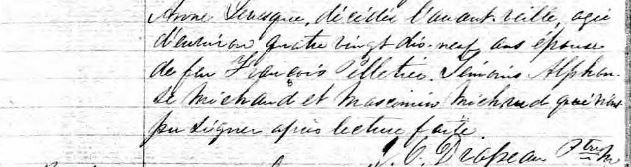 Anne Levesque, décédée l'avant-veille, agée
d'environ quatre vingt dix-neuf ans épouse
de feu François Pelletier. Témoins Alphon-
se Michaud et Maximin Michaud qui n'ont
pu signer après lecture faite.
J. O. Drapeau Ptre